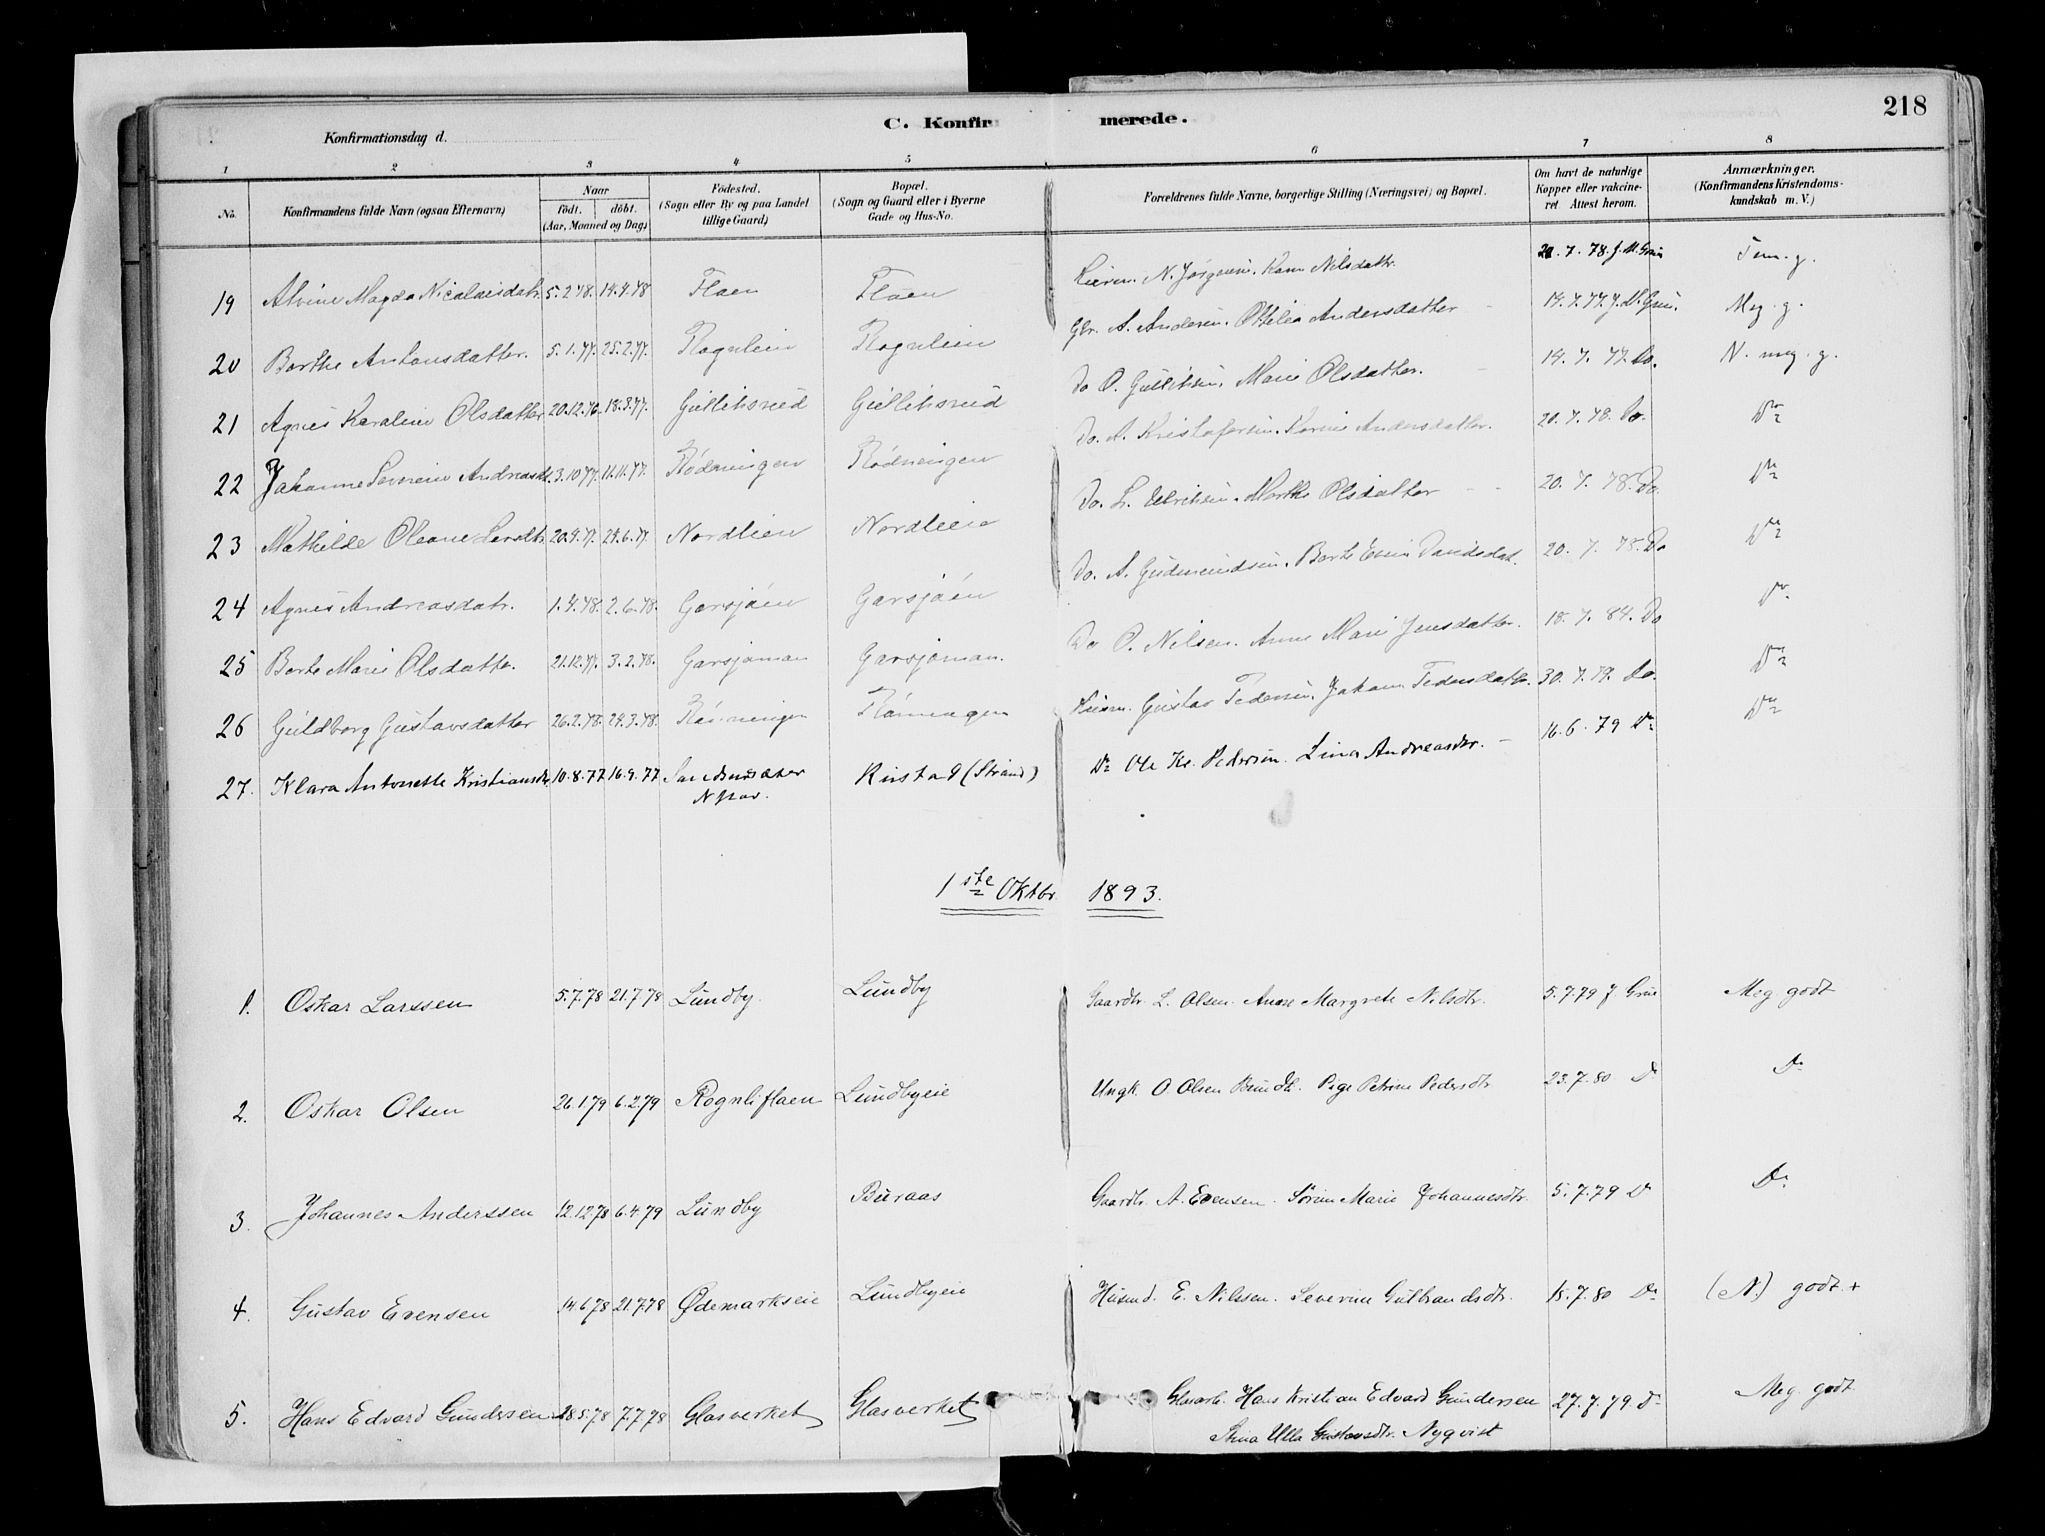 218
C. Konfirmerede.
Konfirmationsdag d.
1 2 3 4 5 6 7 8
No.
Konfirmandens fulde Navn (ogsaa Efternavn)
Naar
født. døbt.
(Aar, Maaned og Dag)
Fødested.
(Sogn eller By og paa Landet
tillige Gaard)
Bopæl.
(Sogn og Gaard eller i Byerne
Gade og Hus-No.
Forældrenes fulde Navne, borgerlige Stilling (Næringsvei) og Bopæl.
Om havt de naturlige
Kopper eller vakcine-
ret Attest herom.
Anmærkninger.
(Konfirmandens Kristendoms-
kundskab m. V.)
19 Alvine Magda Nicolaisdatr. 5.2.78. 14.4.78 Flaen Flaen N. Jørgensen. Karen Nilsdatr. 20.7.78. J. M. Grün Tem. g.
20 Berthe Antonsdatter. 5.1.77. 25.2.77. Rognlien Rognlien Gbr. A. Andersen. Othilia Andersdatter 14.7.77. J. M. Grün. Meg. g.
21 Agnes Karoline Olsdatter 20.12.76. 18.3.77. Gulliksrud Gulliksrud Do O. Gulliksen. Marie Olsdatter. 14.7.77. Do. N. meg. g.
22 Johanne Severine Andreasdt. 3.10.77. 11.11.77. Rødningen Rødningen Do. A. Kristofersen. Karine Andersdatter. 20.7.78. Do. Do
23 Mathilde Oleane Larsdtr. 20.4.77. 24.6.77. Nordlien Nordlien Do. L. Ulriksen. Marthe Olsdatter 20.7.78. Do. Do
24 Agnes Andreasdatr. 1.4.78. 2.6.78. Garsjøen Garsjøen Do. A. Gudmundsen. Berte Davidsdat. 20.7.78. Do Do
25 Berte Marie Olsdatter. 21.12.77. 3.2.78. Garsjøman Garsjøman. Do O. Nilsen. Anne Marie Jensdatter. 18.7.84. Do Do
26 Guldborg Gustavsdatter 26.2.78. 24.3.78. Rønningen Rønningen Husm. Gustav Pedersen. Johanne Pedersdatter. 30.7.79. Do. Do
27. Klara Antonette Kristiansdr. 10.8.77 16.9.77 Rustad (Strand) Do Ole Kr. Pedersen. Lina Andreasdtr. 16.6.79 Do Do
1ste Oktbr. 1893.
1. Oskar Larssen 5.7.78 21.7.78 Lundby. Lundby Gaardbr. L. Olsen. Anne Margrete Nilsdtr. 5.7.79 J Grün Meg godt
2. Oskar Olsen 26.1.79 6.2.79 Rognliflaen Lundbyeie Ungk. O. Olsen Pige Petrine Pedersdtr 23.7.80 Do Do
3. Johannes Anderssen 12.12.78 6.4.79 Lundby Buraas Gaardbr. A. Evensen. Sørine Marie Johannesdtr. 5.7.79 Do Do
4. Gustav Evensen 14.6.78 21.7.78 Ødemarkseie Lundbyeie Husmd. E. Nilssen. Severine Gulbrandsdtr. 15.7.80 Do (N.) godt +
5. Hans Edvard Gundersen 28.5.78 7.7.78 Glasverket Glasverket Glasarb. Hans Kristian Edvard Gundersen 27.7.79 Do Meg. godt
Stina Ulla Gustavsdtr. Nyqvist